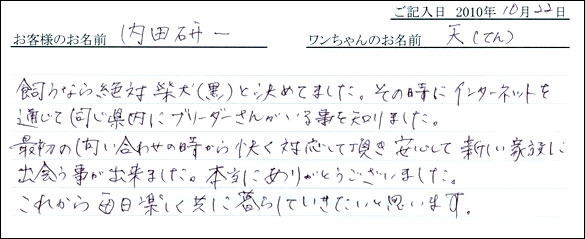 ご記入日 2010年10月22日
お客様のお名前 内田研一 ワンちゃんのお名前 天(てん)
飼うなら絶対柴犬(黒)と決めてました。その時にインターネットを
通じて同じ県内にブリーダーさんがいる事を知りました。
最初の問い合わせの時から快く対応して頂き安心して新しい家族に
出会う事が出来ました。本当にありがとうございました。
これから毎日楽しく共に暮らしていきたいと思います。